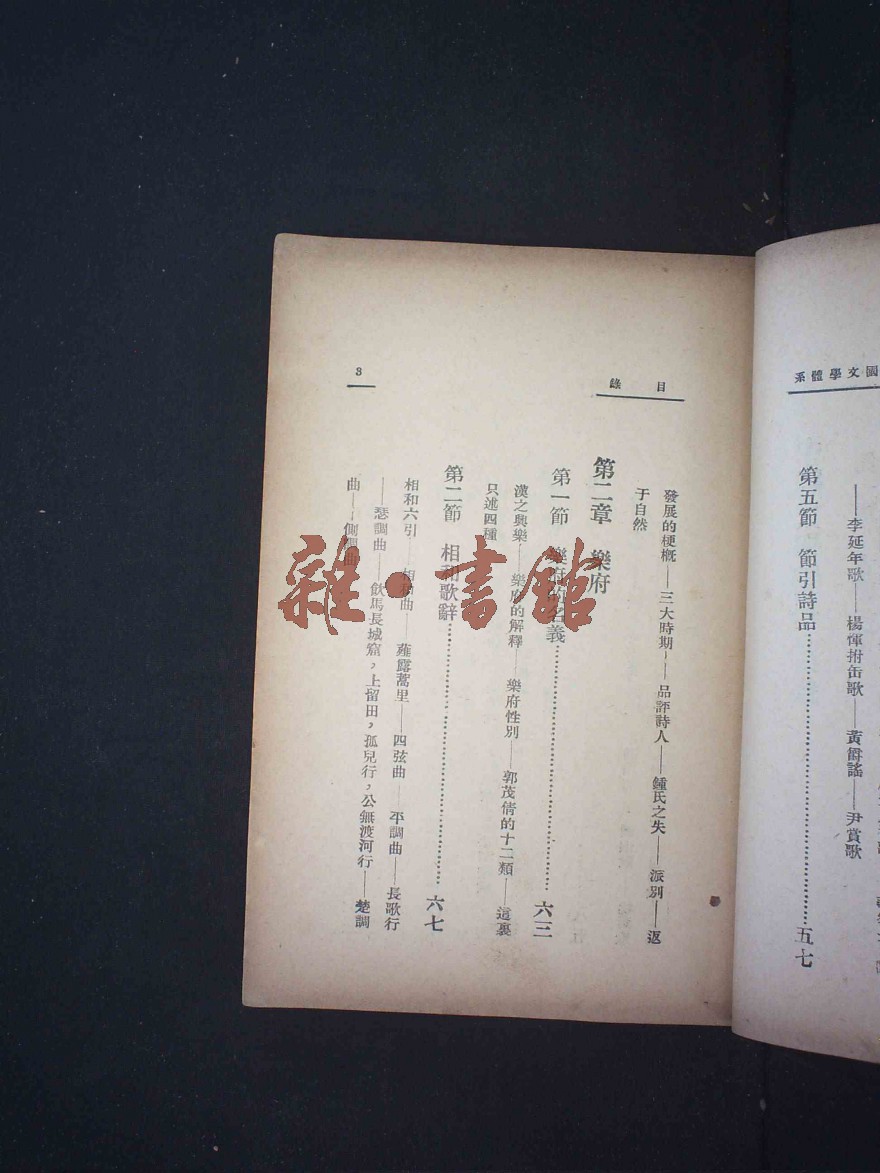 國文學體系
——李延年歌——楊惲拊缶歌——黃爵謠——尹賞歌
第五節　節引詩品…………………………五七
目錄
3
發展的梗概——三大時期——品評詩人——鍾氏之失——派別——返
于自然
第二章　樂府
第一節　樂府的名義…………………………六三
漢之興樂——樂府的解釋——樂府性別——郭茂倩的十二類——這裏
只述四種
第二節　相和歌辭…………………………六七
相和六引——相和曲——薤露蒿里——四弦曲——平調曲——長歌行
——瑟調曲——飲馬長城窟，上留田，孤兒行，公無渡河行——楚調
曲——側調曲
雜·書館